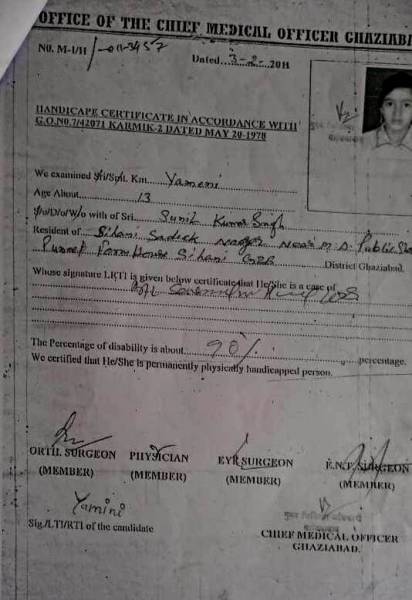 OFFICE OF THE CHIEF MEDICAL OFFICER GHAZIABA
NO. M-I/H/-011-3457
Dated 3-2-2011
HANDICAPE CERTIFICATE IN ACCORDANCE WITH
G.O.NO.7/42071 KARMIK-2 DATED MAY 20-1978
We examined Sri/Smt. Km. Yameni
Age About 13
S/o/D/o/W/o with of Sri Sunil Kumar Singh
Resident of Sihani Sadick Nagar Near M.D. Public
Farm House Sihani GZB District Ghaziabad.
Whose signature LRTI is given below certificate that He/She is a case of
The Percentage of disability is about 90% percentage.
We certified that He/She is permanently physically handicapped person.
ORTH. SURGEON PHYSICIAN EYE SURGEON E.N.T. SURGEON
(MEMBER) (MEMBER) (MEMBER) (MEMBER)
Yamini
Sig./LTI/RTI of the candidate
CHIEF MEDICAL OFFICER
GHAZIABAD.